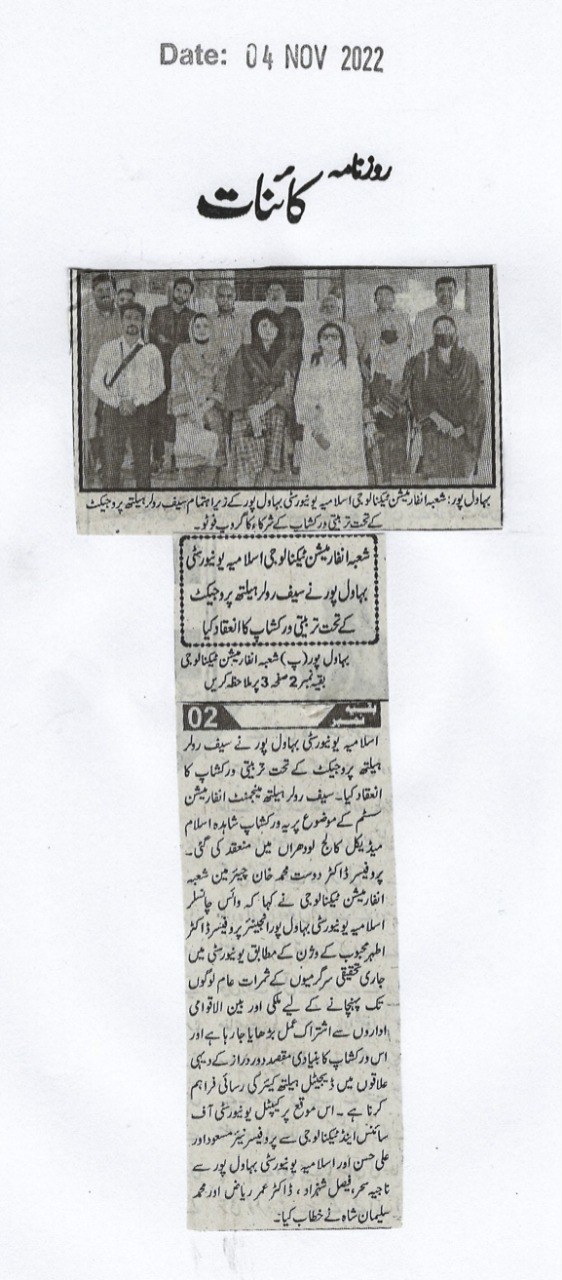 Date: 04 NOV 2022
روزنامہ
کائنات
بہاول پور: شعبہ انفارمیشن ٹیکنالوجی اسلامیہ یونیورسٹی بہاول پور کے زیر اہتمام سیف رولر ہیلتھ پروجیکٹ
کے تحت تربیتی ورکشاپ کے شرکاء کا گروپ فوٹو۔
شعبہ انفارمیشن ٹیکنالوجی اسلامیہ یونیورسٹی
بہاول پور نے سیف رولر ہیلتھ پروجیکٹ
کے تحت تربیتی ورکشاپ کا انعقاد کیا
بہاول پور (پ) شعبہ انفارمیشن ٹیکنالوجی
بقیہ نمبر 2 صفحہ 3 پر ملاحظہ کریں
بقیہ نمبر 02
اسلامیہ یونیورسٹی بہاول پور نے سیف رولر
ہیلتھ پروجیکٹ کے تحت تربیتی ورکشاپ کا
انعقاد کیا۔ سیف رولر ہیلتھ مینجمنٹ انفارمیشن
سسٹم کے موضوع پر یہ ورکشاپ شاہدہ اسلام
میڈیکل کالج لودھراں میں منعقد کی گئی۔
پروفیسر ڈاکٹر دوست محمد خان چیئرمین شعبہ
انفارمیشن ٹیکنالوجی نے کہا کہ وائس چانسلر
اسلامیہ یونیورسٹی بہاول پور انجینئر پروفیسر ڈاکٹر
اطہر محبوب کے وژن کے مطابق یونیورسٹی میں
جاری تحقیقی سرگرمیوں کے ثمرات عام لوگوں
تک پہنچانے کے لیے ملکی اور بین الاقوامی
اداروں سے اشتراک عمل بڑھایا جا رہا ہے اور
اس ورکشاپ کا بنیادی مقصد دور دراز کے دیہی
علاقوں میں ڈیجیٹل ہیلتھ کیئر کی رسائی فراہم
کرنا ہے۔ اس موقع پر کیپٹل یونیورسٹی آف
سائنس اینڈ ٹیکنالوجی سے پروفیسر نیئر مسعود اور
علی حسن اور اسلامیہ یونیورسٹی بہاول پور سے
ناجیہ سحر، فیصل شہزاد، ڈاکٹر عمر ریاض اور محمد
سلیمان شاہ نے خطاب کیا۔